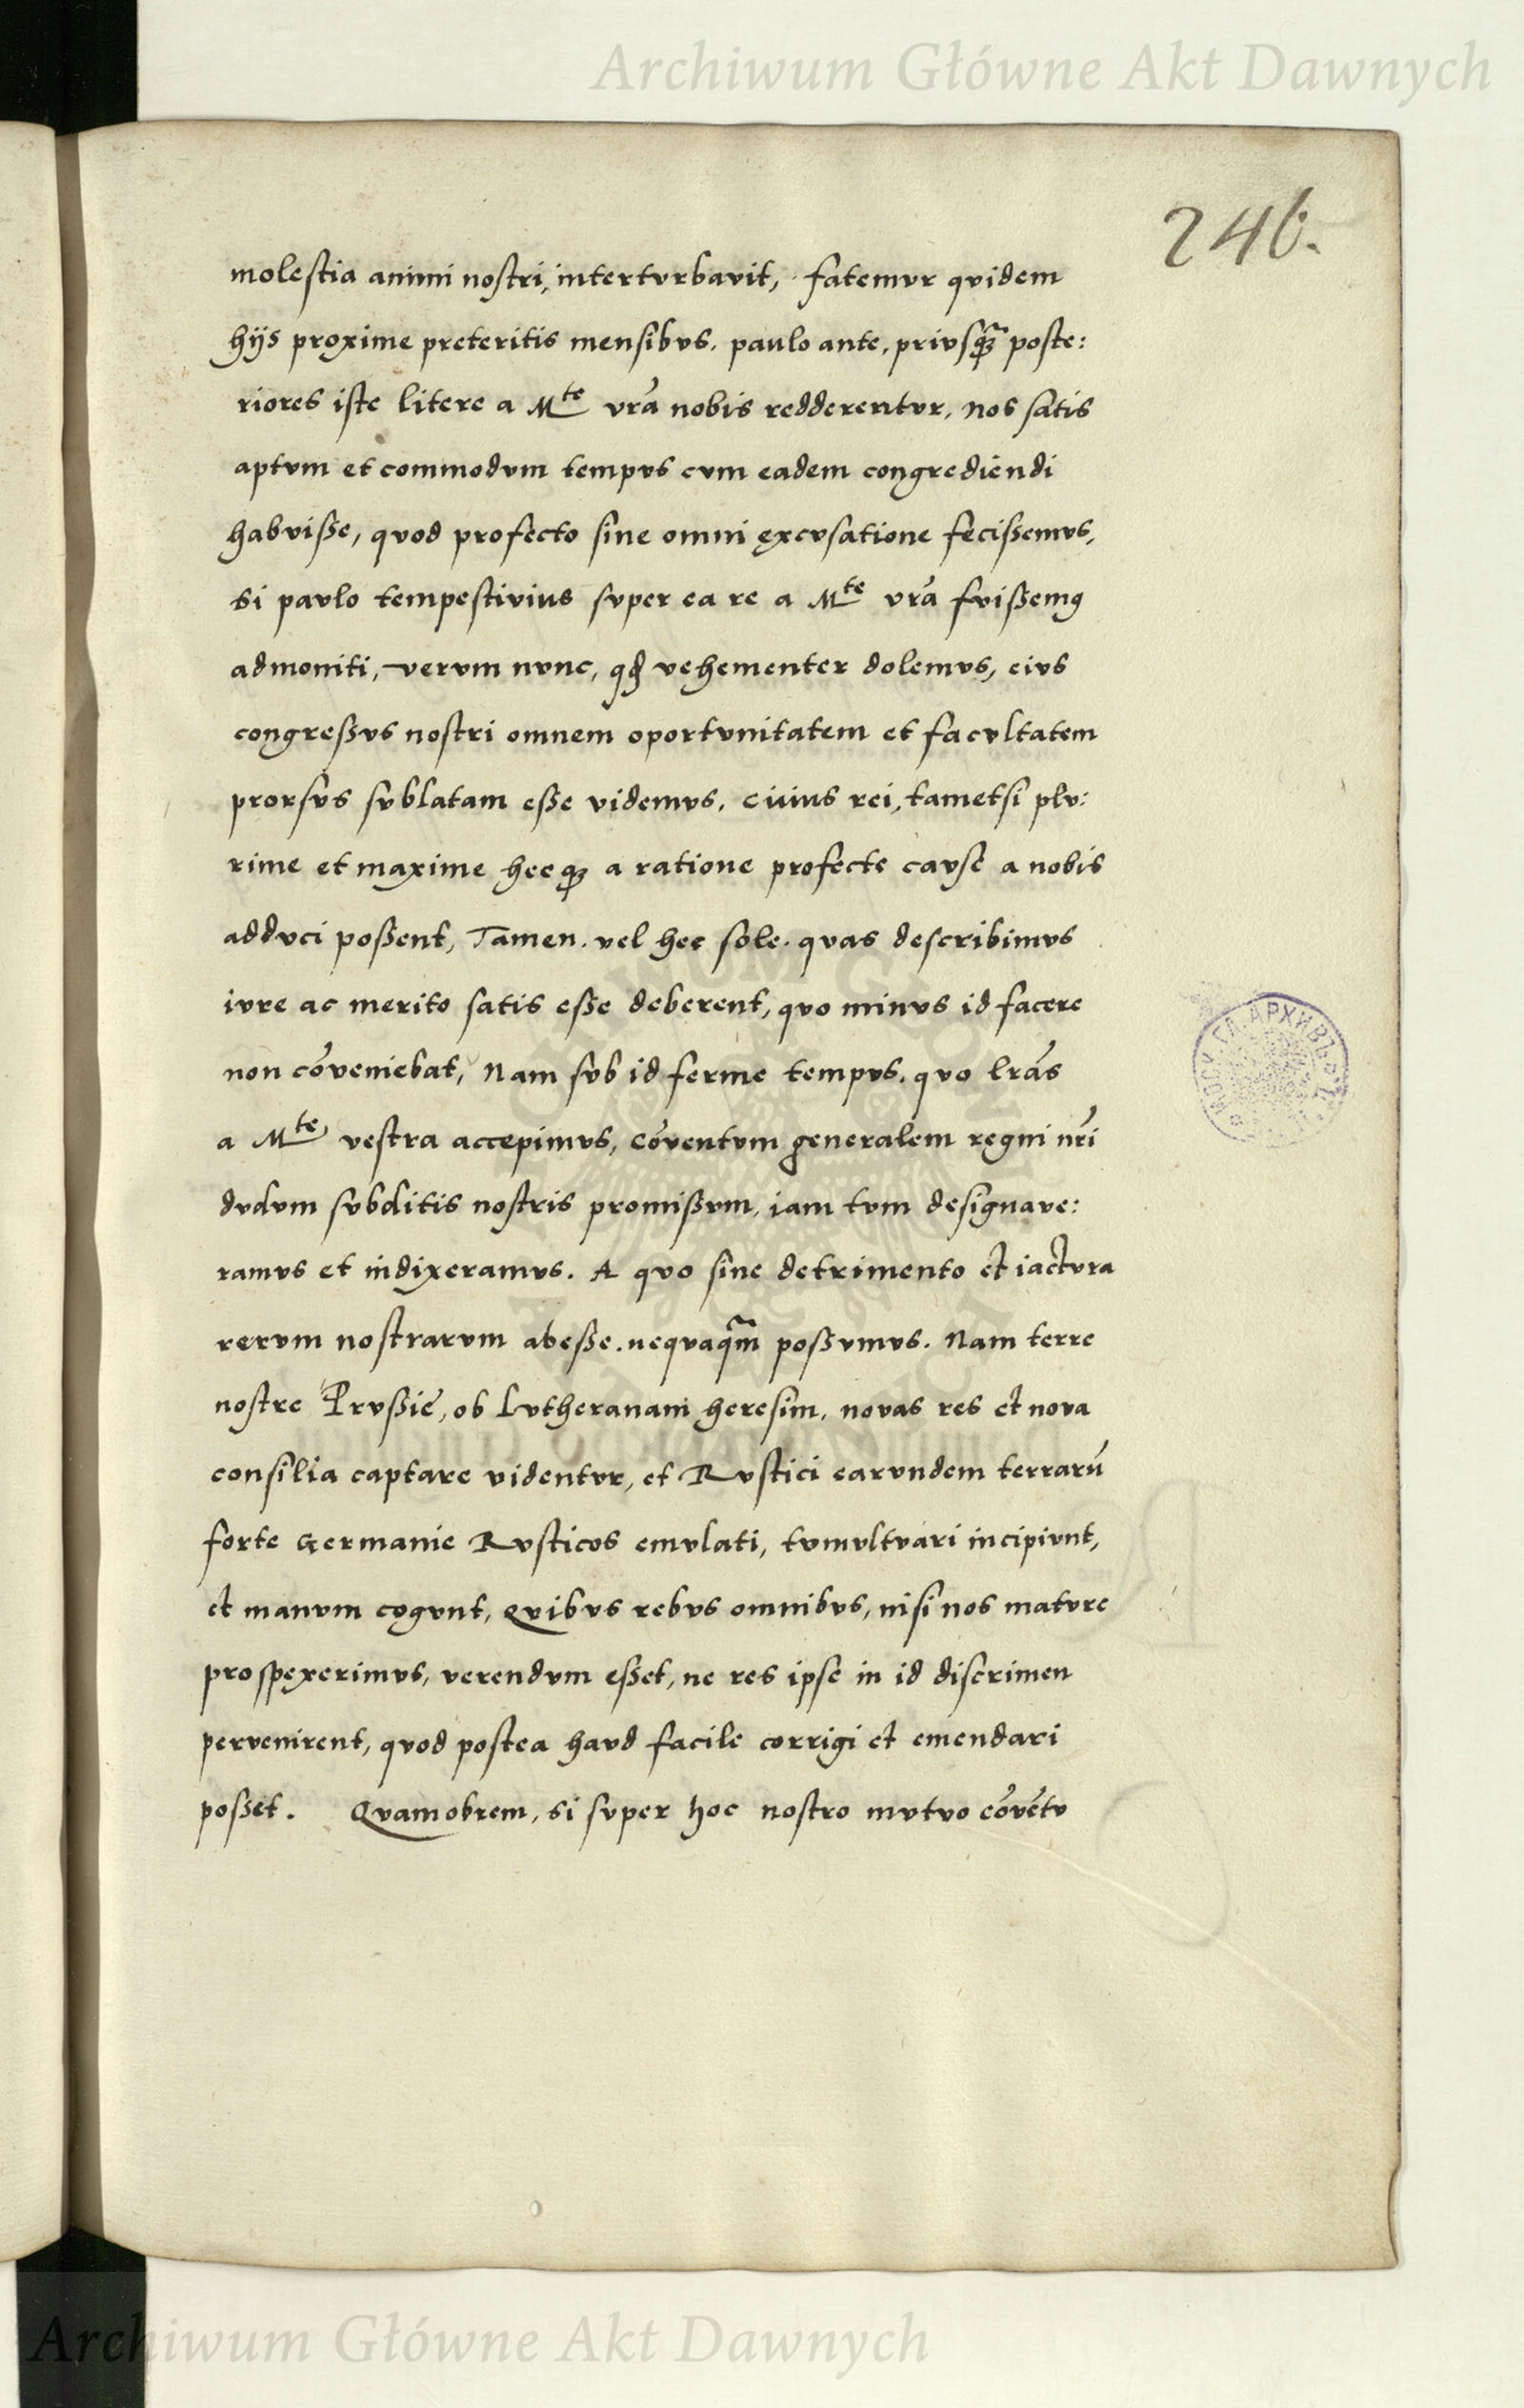 Archiwum Główne Akt Dawnych
246.
molestia animi nostri, intertvrbavit, fatemvr qvidem
hijs proxime preteritis mensibvs. pavlo ante, privsq̃ȝ poste:
riores iste litere a Mte vrã nobis redderentvr, nos satis
aptvm et commodvm tempvs cvm eadem congrediendi
habvisse, qvod profecto sine omni excvsatione fecissemvs,
si pavlo tempestivius svper ea re a Mte vrã fvissemꝯ
admoniti, vervm nvnc, qđ vehementer dolemvs, eivs
congressvs nostri omnem oportvnitatem et facvltatem
prorsvs svblatam esse videmvs. cuius rei, tametsi plv:
rime et maxime heeqȝ a ratione profecte cavse a nobis
addvci possent, Tamen. vel hee sole. qvas describimvs
ivre ac merito satis esse deberent, qvo minvs id facere
non cõveniebat, Nam svb id ferme tempvs. qvo lrãs
a Mte vestra accepimvs, cõventvm generalem regni nrĩ
dvdvm svbditis nostris promissvm, iam tvm designave:
ramvs et indixeramvs. A qvo sine detrimento et iactvra
rervm nostrarvm abesse. neqvaq̃m possvmvs. Nam terre
nostre Prvssie, ob Lvtheranam heresim, novas res et nova
consilia captare videntvr, et Rvstici earvndem terrarũ
forte Germanie Rvsticos emvlati, tvmvltvari incipivnt,
et manvm cogvnt, Qvibvs rebvs omnibvs, nisi nos matvre
prospexerimvs, verendvm esset, ne res ipse in id discrimen
pervenirent, qvod postea havd facile corrigi et emendari
posset. Qvamobrem, si svper hoc nostro mvtvo cõvẽtv
Archiwum Główne Akt Dawnych